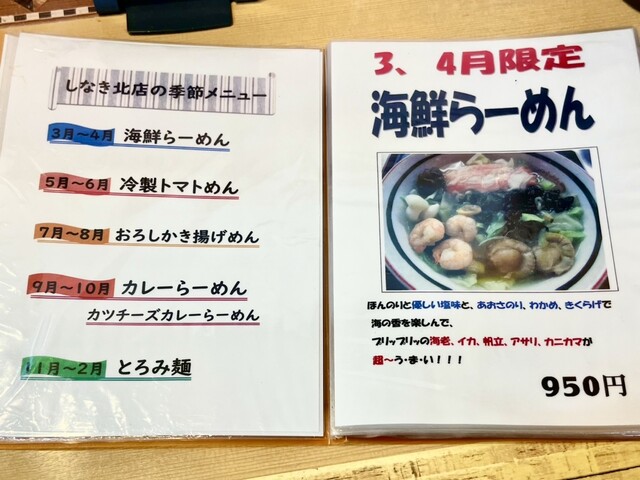 しなき北店の季節メニュー
3月〜4月 海鮮らーめん
5月〜6月 冷製トマトめん
7月〜8月 おろしかき揚げめん
9月〜10月 カレーらーめん
カツチーズカレーらーめん
11月〜2月 とろみ麺
3、4月限定
海鮮らーめん
ほんのりと優しい塩味と、あおさのり、わかめ、きくらげで
海の香を楽しんで、
プリップリッの海老、イカ、帆立、アサリ、カニカマが
超〜う・ま・い！！！
950円